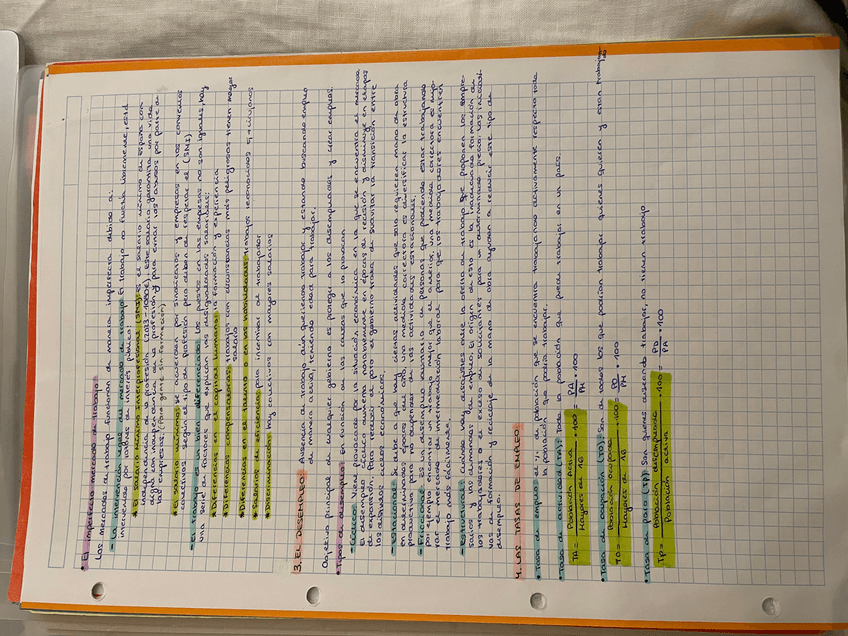 • El imperfecto mercado de trabajo
Los mercados de trabajo funcionan de manera imperfecta debido a:
- La intervención legal del mercado de trabajo: El trabajo no fluctúa libremente, está
intervenido por motivos de interés público:
• El salario mínimo interprofesional (SMI): es el salario mínimo de España con
independencia de la profesión, este salario garantiza una vida
digna con independencia de la profesión y para evitar los abusos por parte de
las empresas. (Para gente sin formación)
• El salario mínimo: se acuerdan por sindicatos y empresas en los convenios
colectivos según el tipo de profesión pero deben de respetar el (SMI)
- El trabajo es un bien diferenciado: Los puestos en las empresas no son iguales, hay
una serie de factores que explican las desigualdades salariales:
• Diferencias en el capital humano: la formación y experiencia
• Diferencias compensatorias: trabajos con circunstancias más peligrosas tienen mayor
salario
• Diferencias en el talento o en las habilidades: trabajos reconocidos
• Salarios de eficiencia: para incentivar al trabajador
• Discriminación: hay colectivos con mayores salarios
3. EL DESEMPLEO: Ausencia de trabajo aún queriendo trabajar y estando buscando empleo
de manera activa, teniendo edad para trabajar.
Objetivo principal de cualquier gobierno es proteger a los desempleados y crear empleos.
• Tipos de desempleo: En función de las causas que lo provocan
- Cíclico: Viene provocado por la situación económica en la que se encuentra el mercado.
El desempleo cíclico aumenta en épocas de recesión y disminuye en etapas
de expansión. Para reducir el paro el gobierno trata de suavizar la transición entre
los distintos ciclos económicos.
- Estacional: Se debe a que hay ciertas actividades que solo requieren mano de obra
en determinadas épocas del año. Una medida correctora es diversificar la estructura
productiva para no depender de las actividades estacionales.
- Friccional: Es un desempleo voluntario de personas que pudiendo estar trabajando
por ejemplo encontrar un trabajo mejor que el anterior, una medida correctora es mejo-
rar el servicio de intermediación laboral para que los trabajadores encuentren
trabajo más fácilmente.
- Estructural: Cuando hay desajustes entre la oferta de trabajo que proponen los empre-
sarios y las demandas de empleo. El origen de esto es la inadecuada formación de
los trabajadores o el exceso de solicitantes para un determinado precio. Las iniciati-
vas de formación y reciclaje de la mano de obra ayudan a reducir este tipo de
desempleo.
4. LAS TASAS DE EMPLEO
• Tasa de empleo: el % de población que se encuentra trabajando activamente respecto toda
la población que podría trabajar.
• Tasa de actividad (TA): Toda la población que puede trabajar en un país.
TA = Población activa / Mayores de 16 · 100 = PA / PM · 100
• Tasa de ocupación (TO): Son de todos los que podrían trabajar quienes quieren y están trabajando
TO = Población ocupada / Mayores de 16 · 100 = PO / PM · 100
• Tasa de paro (TP): Son quienes queriendo trabajar, no tienen trabajo
TP = Población desempleada / Población activa · 100 = PD / PA · 100